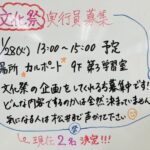 文化祭 実行員募集
1/28(火) 13:00〜15:00 予定
場所 カルポート 9F 第3学習室
文化祭の企画をしてくれる方募集です!
どんな内容でするのかは全然決まっていません
気になる人は松井まで声かけて下さい
現在2名決定!!!